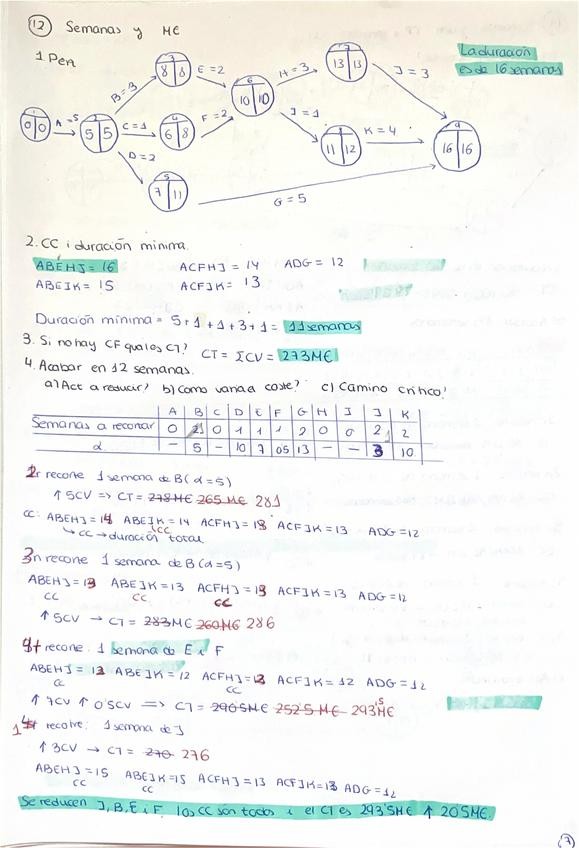 12 Semanas y M€
1 Pert
La duración
es de 16 semanas
1 0 0
A = 5
2 5 5
B = 3
3 8 8
C = 1
4 6 8
D = 2
5 7 11
E = 2
F = 2
6 10 10
H = 3
7 13 13
I = 1
8 11 12
J = 3
K = 4
9 16 16
G = 5
2. CC i duración minima.
ABEHJ = 16 ACFHJ = 14 ADG = 12
ABEIK = 15 ACFIK = 13
Duración minima = 5+1+1+3+1 = 11 semanas
3. Si no hay CF qual es CT? CT = ΣCV = 273M€
4. Acabar en 12 semanas.
a) Act a reducir? b) Como varia coste? c) Camino critico?
A B C D E F G H I J K
Semanas a recortar 0 2 0 1 1 1 2 0 0 2 1 2
α - 5 - 10 7 0'5 13 - - 3 10
2r recorte 1 semana de B (α=5)
↑ 5CV => CT = 278M€ 265M€ 281
CC: ABEHJ = 14 ABEIK = 14 ACFHJ = 13 ACFIK = 13 ADG = 12
CC → duración total CC
3r recorte 1 semana de B (α=5)
ABEHJ = 13 ABEIK = 13 ACFHJ = 13 ACFIK = 13 ADG = 12
CC CC CC
↑ 5CV → CT = 283M€ 260M€ 286
4t recorte: 1 semana de E i F
ABEHJ = 12 ABEIK = 12 ACFHJ = 12 ACFIK = 12 ADG = 12
CC CC
↑ 7CV ↑ 0'5CV => CT = 290'5M€ 252'5M€ 293'5M€
1r recorte: 1 semana de J
↑ 3CV → CT = 270 276
ABEHJ = 15 ABEIK = 15 ACFHJ = 13 ACFIK = 13 ADG = 12
CC CC
Se reducen J, B, E i F los CC son todos i el CT es 293'5M€ ↑ 20'5M€.
7